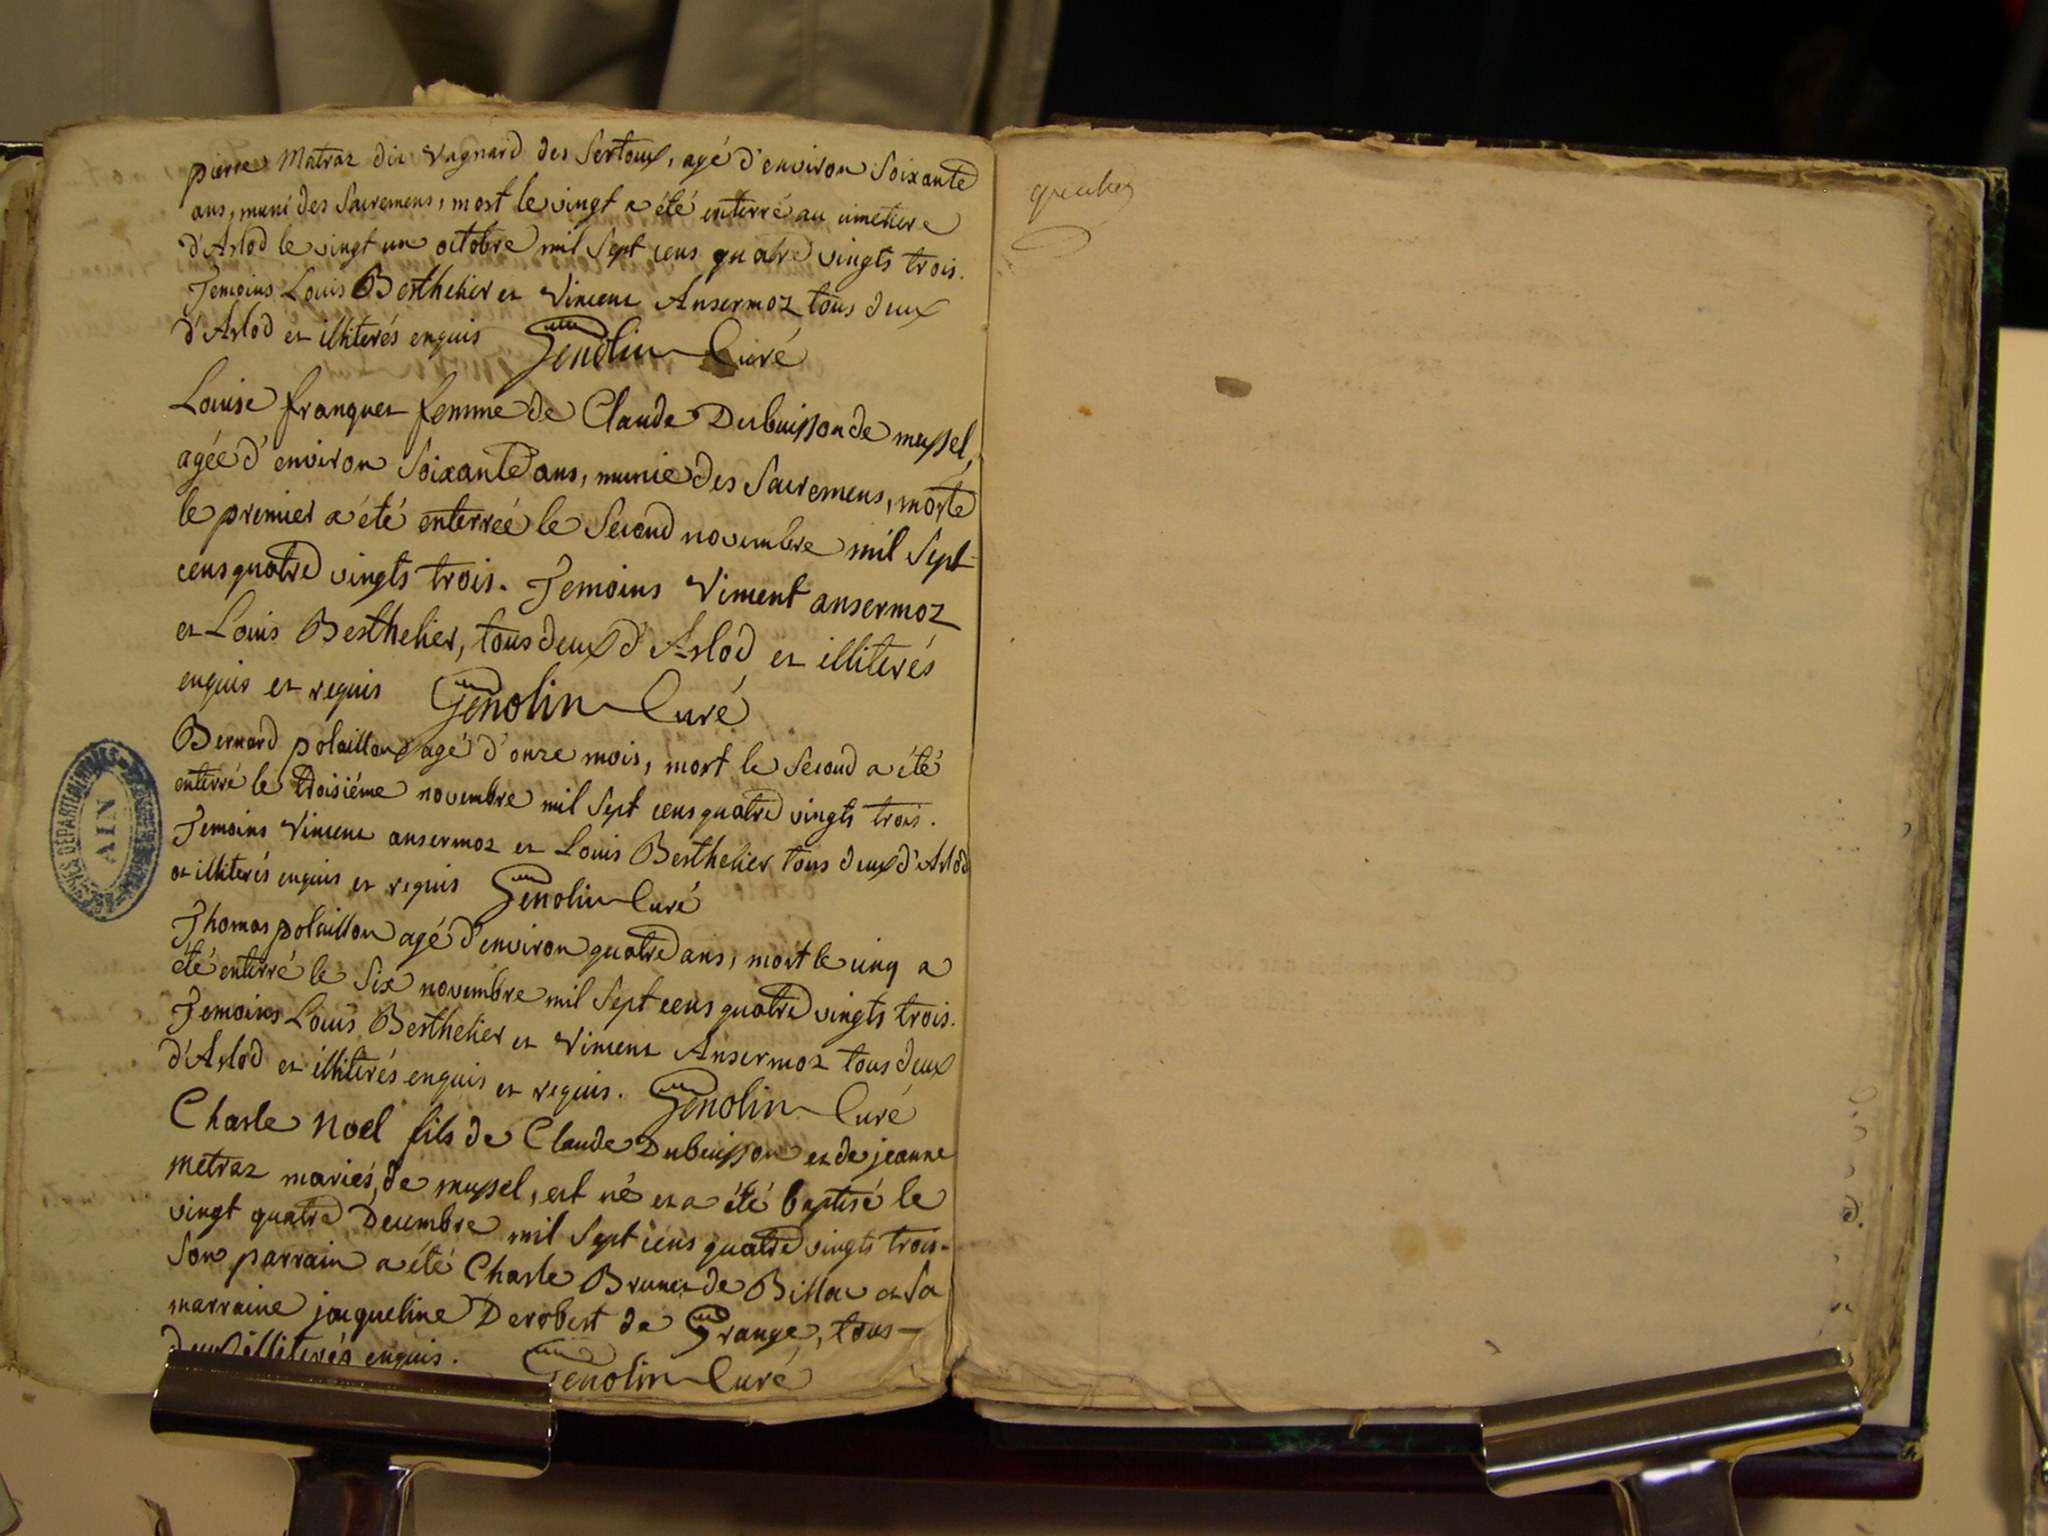 pierre Matraz dit Vagnard des Sertoux, agé d'environ Soixante
ans, muni des Sacremens, mort le vingt a été enterré au cimetiere
d'Arlod le vingt un octobre mil Sept cens quatre vingts trois.
Temoins Louis Berthelier et Vincent Ansermoz tous deux
d'Arlod et illiterés enquis Genolin Curé
Louise franquet femme de Claude Dubuisson de mussel,
agée d'environ Soixante ans, munie des Sacremens, morte
le premier a été enterreé le Second novembre mil Sept
cens quatre vingts trois. Temoins Vincent ansermoz
et Louis Berthelier, tous deux d'Arlod et illiterés
enquis et requis Genolin Curé
Bernard polaillon agé d'onze mois, mort le Second a été
enterré le troisiéme novembre mil Sept cens quatre vingts trois.
Temoins Vincent ansermoz et Louis Berthelier tous deux d'Arlod
et illiterés enquis et requis Genolin Curé
Thomas polaillon agé d'environ quatre ans, mort le cinq a
été enterré le Six novembre mil Sept cens quatre vingts trois.
Temoins Louis Berthelier et Vincent Ansermoz tous deux
d'Arlod et illiterés enquis et requis. Genolin Curé
Charle Noel fils de Claude Dubuisson et de jeanne
metraz mariés, de mussel, est né et a été baptisé le
vingt quatre Decembre mil Sept cens quatre vingts trois.
Son parrain a été Charle Brunet de Billac et Sa
marraine jacqueline Derobert de Grange, tous
deux illiterés enquis. Genolin Curé
DEPARTEMENTALES
AIN